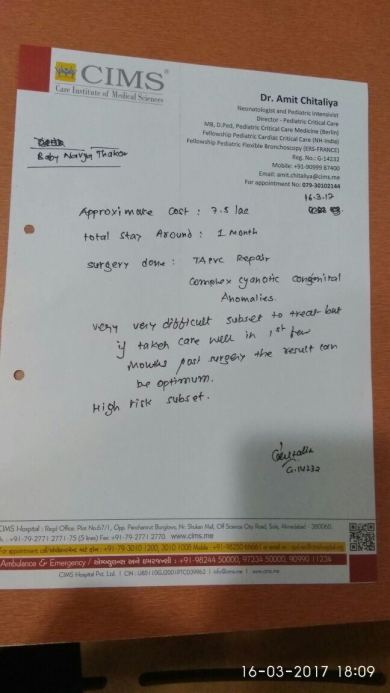 CIMS®
Care Institute of Medical Sciences
Dr. Amit Chitaliya
Neonatologist and Pediatric Intensivist
Director - Pediatric Critical Care
MB, D.Ped, Pediatric Critical Care Medicine (Berlin)
Fellowship Pediatric Cardiac Critical Care (NH-India)
Fellowship Pediatric Flexible Bronchoscopy (ERS-FRANCE)
Reg. No.: G-14232
Mobile: +91-90999 87400
Email: amit.chitaliya@cims.me
For appointment No: 079-30102144
Baby Navya Thakor
16-3-17
Approximate cost : 7.5 lac
total stay Around : 1 Month
surgery done : TAPVC Repair
Complex cyanotic congenital
Anomalies.
very very difficult subset to treat but
if taken care well in 1st few
Months post surgery the result can
be optimum.
High risk subset.
G.14232
CIMS Hospital : Regd Office: Plot No.67/1, Opp. Panchamrut Bunglows, Nr. Shukan Mall, Off Science City Road, Sola, Ahmedabad - 380060.
+91-79-2771 2771-75 (5 lines) Fax: +91-79-2771 2770 www.cims.me
For appointment call +91-79-3010 1200, 3010 1008 Mobile : +91-98250 66661
Ambulance & Emergency / : +91-98244 50000, 97234 50000, 90990 11234
CIMS Hospital Pvt. Ltd. | CIN : U85110GJ2001PTC039962 | info@cims.me | www.cims.me
16-03-2017 18:09